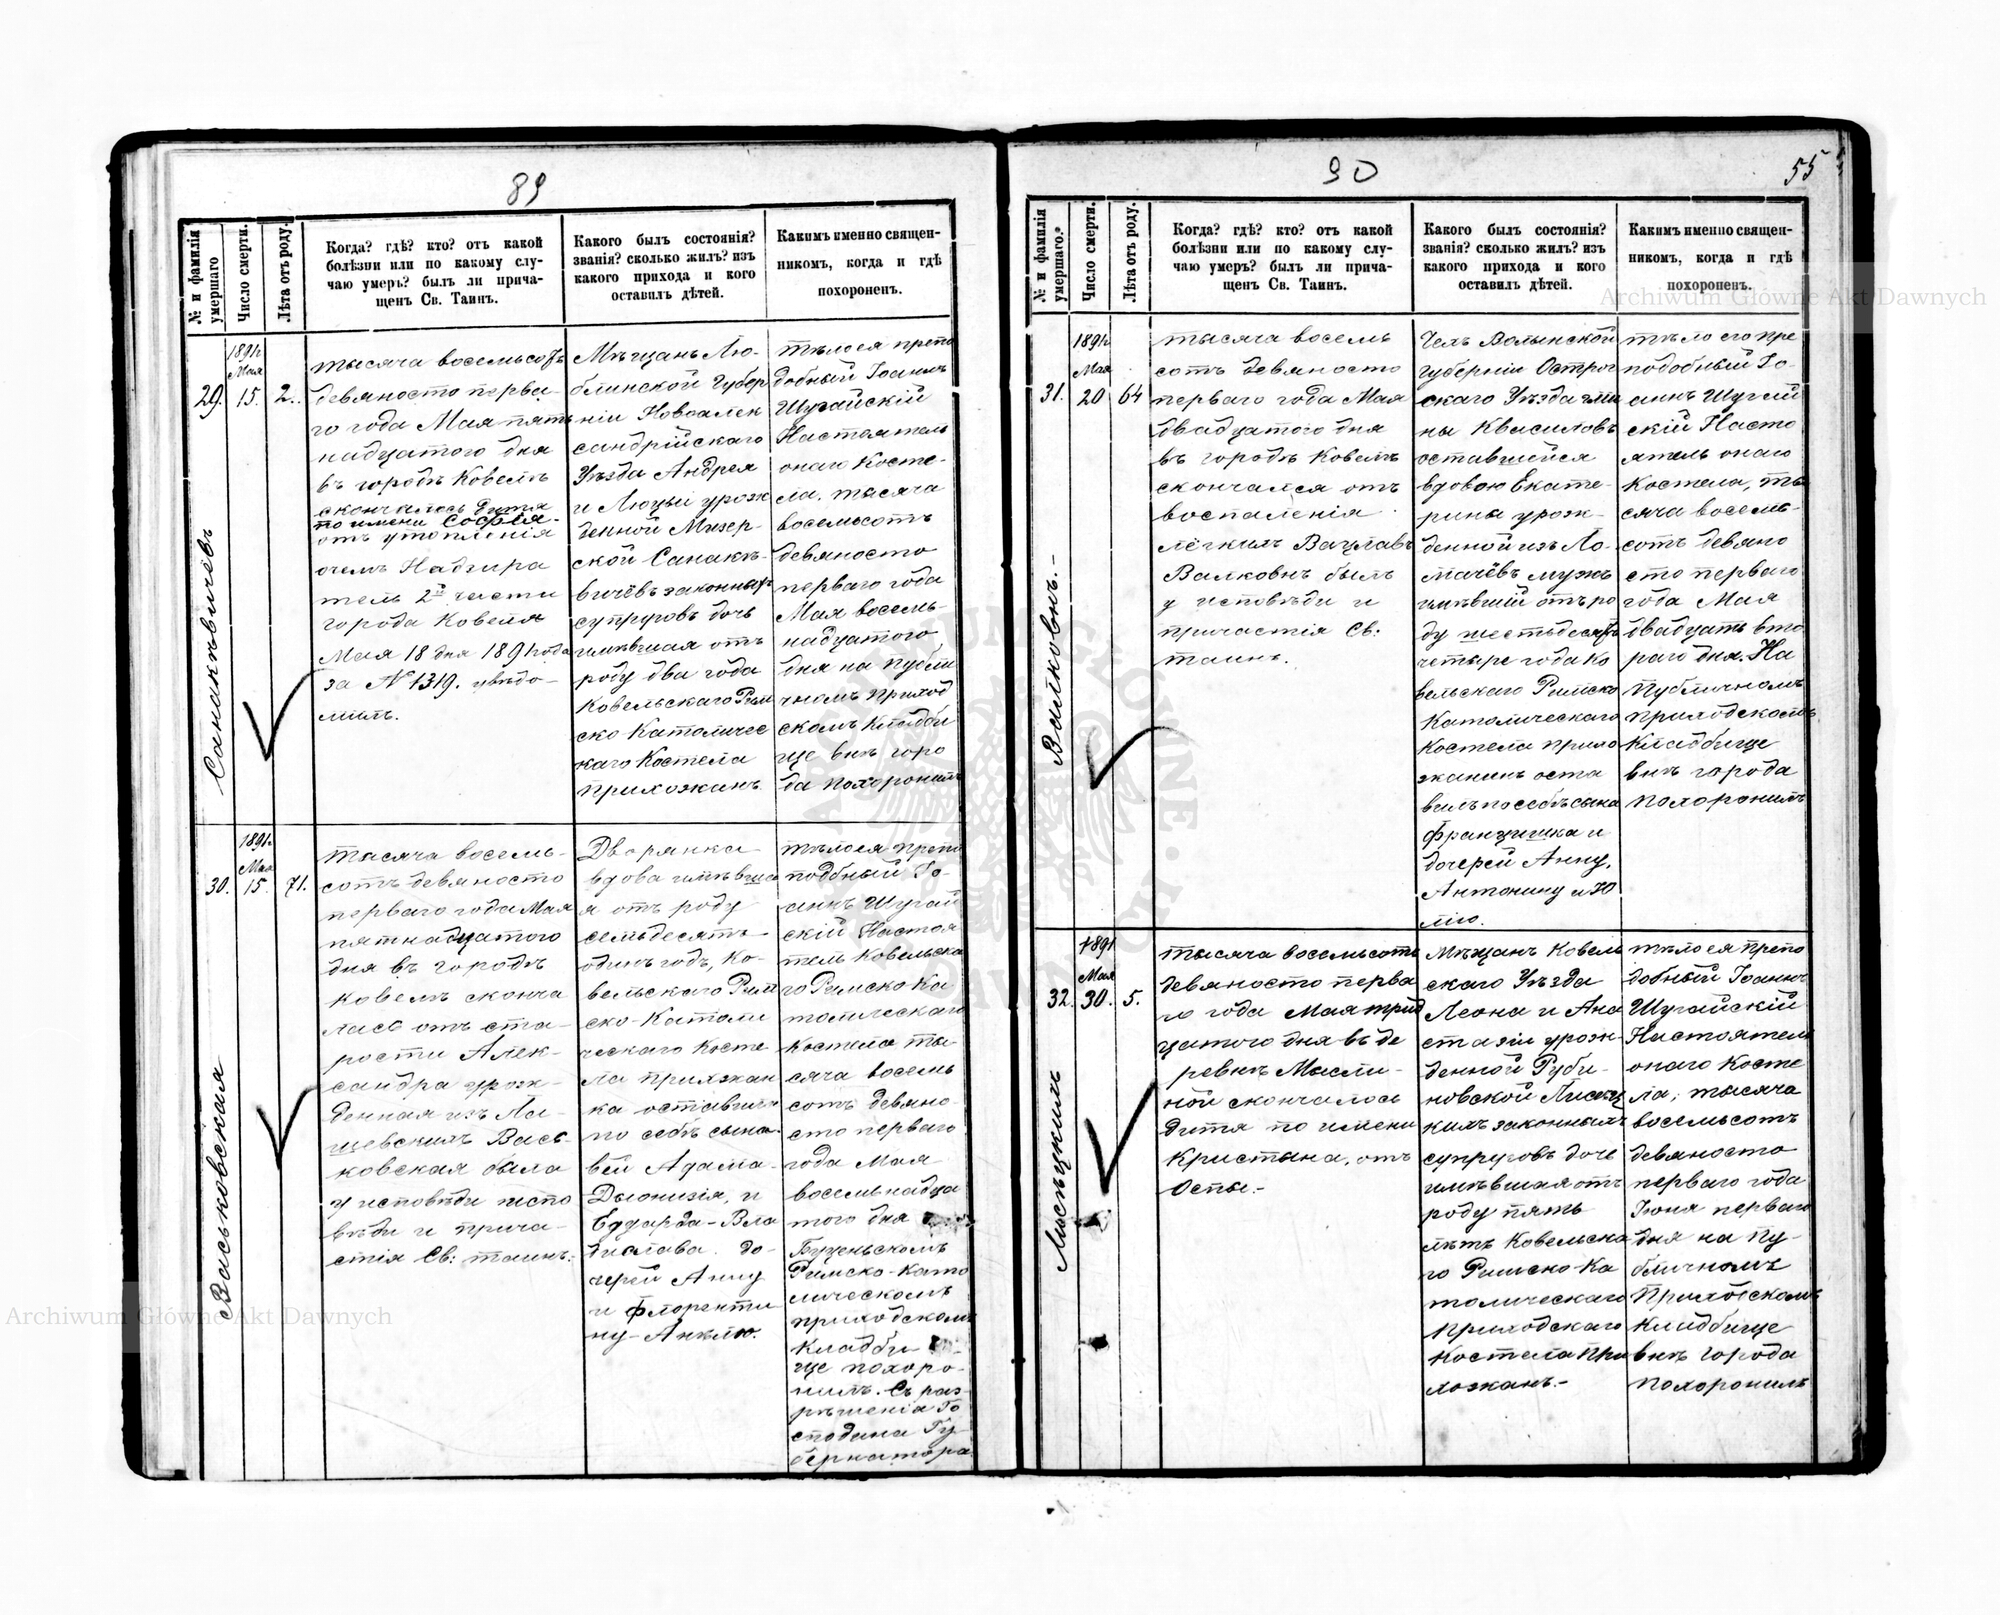 89
№ и фамилія умершаго
Число смерти.
Лѣта отъ роду.
Когда? гдѣ? кто? отъ какой
болѣзни или по какому слу-
чаю умеръ? былъ ли прича-
щенъ Св. Таинъ.
Какого былъ состоянія?
званія? сколько жилъ? изъ
какого прихода и кого
оставилъ дѣтей.
Какимъ именно священ-
никомъ, когда и гдѣ
похороненъ.
29.
1891г.
Мая
15.
2.
тысяча восемьсотъ
девяносто перва
го года Мая пят
надцатого дня
въ городѣ Ковелѣ
скончалось дитя
по имени Софія
отъ утопленія
очемъ Надзира
тель 2й части
города Ковеля
Мая 18 дня 1891 года
за № 1319. увѣдо-
милъ.
Мѣщанъ Лю-
блинской Губер
ніи Новоалек
сандрійскаго
Уѣзда Андрея
и Люцыи урож
денной Мизер-
ской Санакѣ-
вичёвъ законныхъ
супруговъ дочь
имѣвшая отъ
роду два года
Ковельскаго Рим
ско-Католичес
каго Костела
прихожанъ.
тѣло ея препо
добный Іоаннъ
Шугайскій
Настоятель
онаго Косте-
ла. тысяча
восемьсотъ
девяносто
перваго года
Мая восемь-
надцатого
дня на Публи
чномъ приход
скомъ Кладби
ще внѣ горо
да похоронилъ
Санакѣвичёвъ
30.
1891г.
Мая
15.
71.
тысяча восемь-
сотъ девяносто
перваго года Мая
пятнадцатого
дня въ городѣ
Ковелѣ сконча
лась отъ ста-
рости Алек-
сандра урож-
денная изъ Ла-
щевскихъ Вась-
ковская была
у исповѣди испо
вѣди и прича-
стія Св: таинъ.
Дворянка-
вдова имѣвша
я отъ роду
семьдесятъ
одинъ годъ, Ко-
вельскаго Рим
ско-Католи
ческаго Косте
ла прихжан
ка оставила
по себѣ сыно-
вей Адама-
Дыонизія, и
Едуарда-Вла
дислава. до-
черей Анну
и Флоренти
ну-Анелю.
тѣло ея препо
добный Іо-
аннъ Шугай
скій Настоя
тель Ковельска
го Римско-Ка
толическаго
Костела ты
сяча восемь
сотъ девяно-
сто перваго
года Мая
восемнадца
того дня
Римско-Като
лическомъ
приходскомъ
Кладби-
ще похоро-
нилъ. Съ раз-
рѣшенія Го
сподина Гу-
бернатора
Васьковская
90
55
№ и фамилія умершаго.
Число смерти.
Лѣта отъ роду.
Когда? гдѣ? кто? отъ какой
болѣзни или по какому слу-
чаю умеръ? былъ ли прича-
щенъ Св. Таинъ.
Какого былъ состоянія?
званія? сколько жилъ? изъ
какого прихода и кого
оставилъ дѣтей.
Какимъ именно священ-
никомъ, когда и гдѣ
похороненъ.
31.
1891г.
Мая
20
64
тысяча восемь
сотъ девяносто
перваго года Мая
двадцатого дня
въ городѣ Ковелѣ
скончался отъ
воспаленія
лёгкихъ Вацлавъ
Валковнъ былъ
у исповѣди и
причастія Св:
таинъ.
Чехъ Волынской
Губерніи Острог
скаго Уѣзда гми
ны Квасиловъ
оставшейся
вдовою Екате-
рины урож-
денной изъ Ло-
мачёвъ мужъ
имѣвшій отъ ро
ду шестьдесятъ
четыре года Ко
вельскаго Римско
Католическаго
Костела прихо
жанинъ оста
вилъ по себѣ сына
Францишка и
дочерей Анну,
Антонину и Ю
лію.
тѣло его пре
подобный Іо-
аннъ Шугай
скій Насто
ятель онаго
Костела, ты
сяча восемь-
сотъ девяно
сто перваго
года Мая
двадцать вто
раго дня. На
Публичномъ
приходскомъ
Кладбище
внѣ города
похоронилъ
Валковнъ.-
32.
1891
Мая
30.
5.
тысяча восемьсотъ
девяносто перва
го года Мая трид
цатого дня въ де
ревнѣ Мысли-
ной скончалось
дитя по имени
Кристына, отъ
Оспы.-
Мѣщанъ Ковель
скаго Уѣзда
Леона и Ана
стазіи урож-
денной Руби-
новской Лисец
кихъ законныхъ
супруговъ дочь
имѣвшая отъ
роду пять
лѣтъ Ковельска
го Римско-Ка
толическаго
приходскаго
Костела при
хожанъ.-
тѣло ея препо
добный Іоаннъ
Шугайскій
Настоятель
онаго Косте
ла, тысяча
восемьсотъ
девяносто
перваго года
Іюня перваго
дня на Пу-
бличномъ
Приходскомъ
Кладбище
внѣ города
похоронилъ
Archiwum Główne Akt Dawnych
Archiwum Główne Akt Dawnych